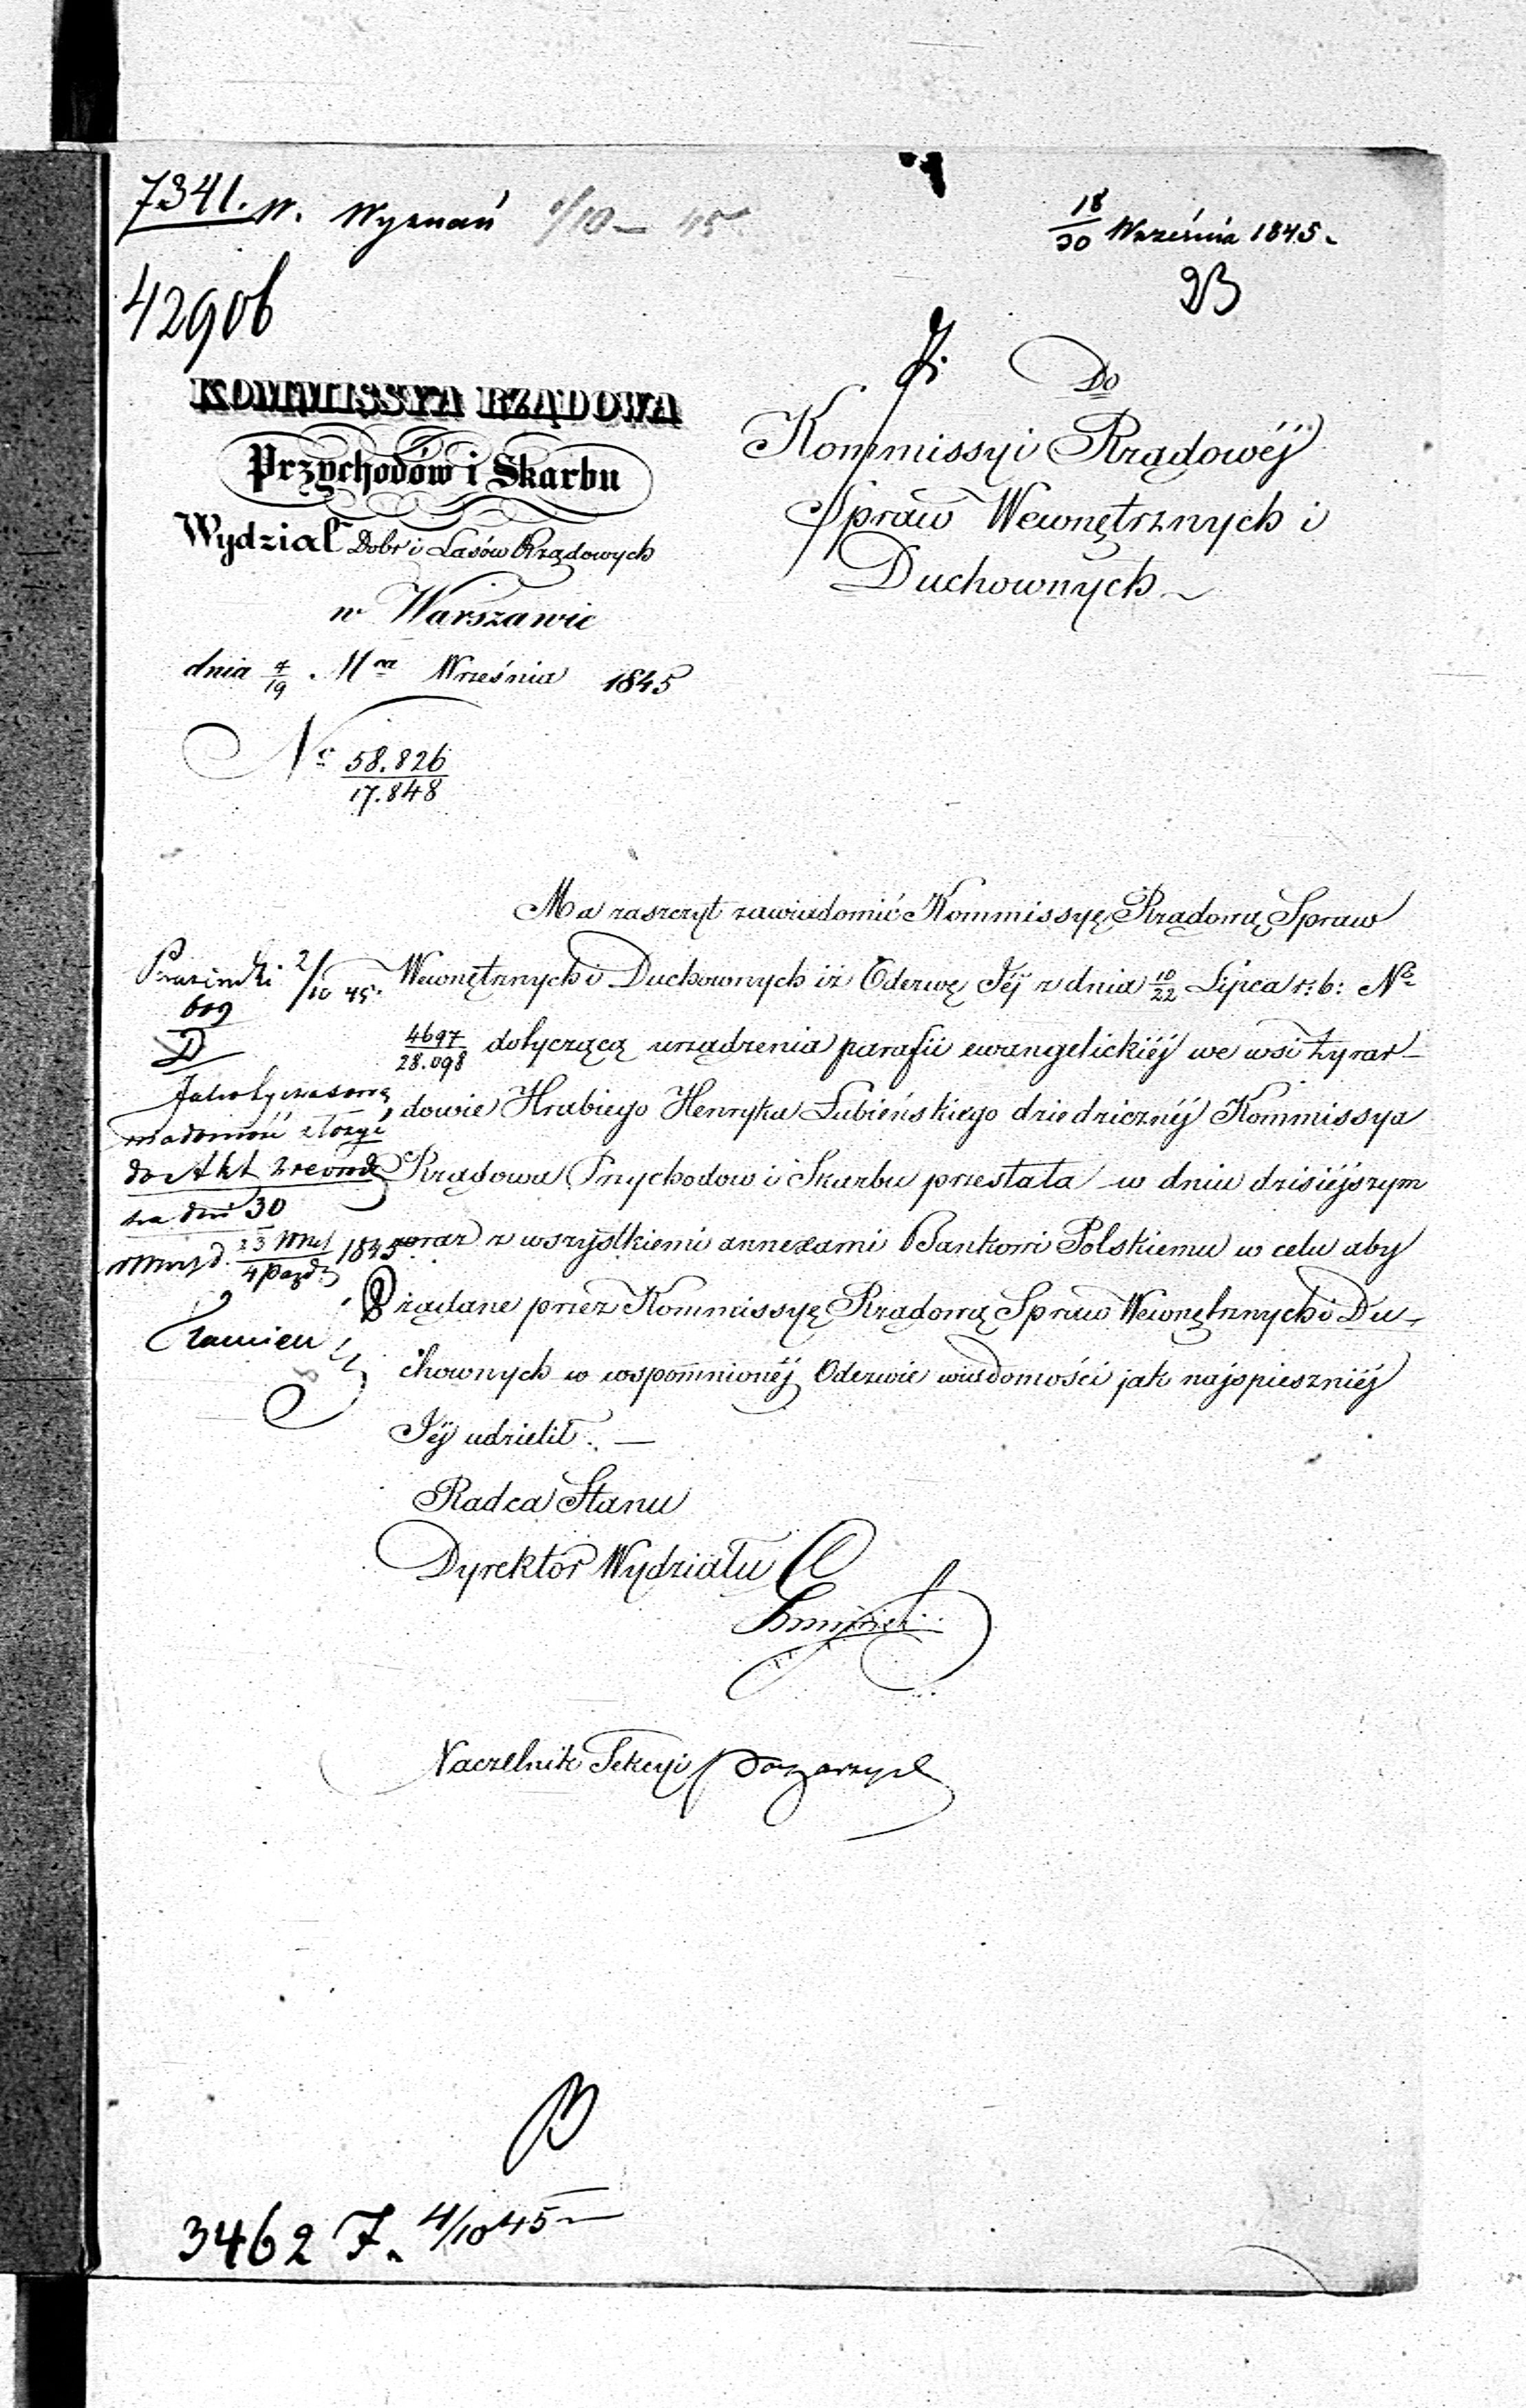 7341. W. Wyznań 1/10 — 45
18/30 Września 1845.
23
42906
KOMMISSYA RZĄDOWA
Przychodów i Skarbu
Wydział Dobr i Lasów Rządowych
w Warszawie
dnia 7/19 Mca Września 1845
No 58.826/17.848
Do
Kommissyi Rządowéj
Spraw Wewnętrznych i
Duchownych
Ma zaszczyt zawiadomić Kommissyę Rządową Spraw
Wewnętrznych i Duchownych iż Odezwę Jéj z dnia 10/22 Lipca r: b: No
4697/28.098 dotyczącą urządzenia parafii ewangelickiéj we wsi Żyrar-
dowie Hrabiego Henryka Łubieńskiego dziedzicznéj Kommissya
Rządowa Przychodow i Skarbu przesłała w dniu dzisiéjszym
wraz z wszystkiemi annexami Bankowi Polskiemu w celu aby
żądane przez Kommissyę Rządową Spraw Wewnętrznych i Du-
chownych w wspomnionéj Odezwie wiadomości jak najspieszniéj
Jéj udzielił. —
Radca Stanu
Dyrektor Wydziału
Naczelnik Sekcyi
2/10 45.
609
D
Jako tymczasową
wiadomość złożyć
do Akt
na dni 30
23 Wrz/4 Paźdz 1845
3462 F. 4/10 45 —